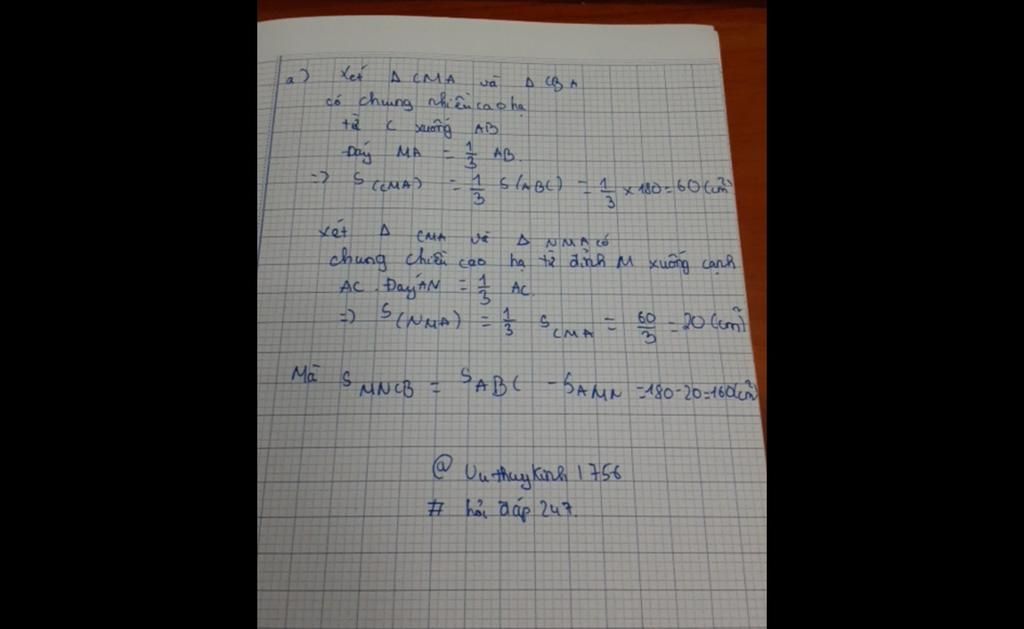 a) Xét Δ CMA và Δ CBA
có chung nhiều cao hạ
từ C xuống AB
Đáy MA = 1/3 AB.
=> S(CMA) = 1/3 S(ABC) = 1/3 x 180 = 60 (cm²)
Xét Δ CMA và Δ NMA có
chung chiều cao hạ từ đỉnh M xuống cạnh
AC. Đáy AN = 1/3 AC.
=> S(NMA) = 1/3 S CMA = 60/3 = 20 (cm²)
Mà S MNCB = S ABC - S AMN = 180 - 20 = 160 (cm²)
@ Vuthuykinh1756
# hỏi đáp 247.